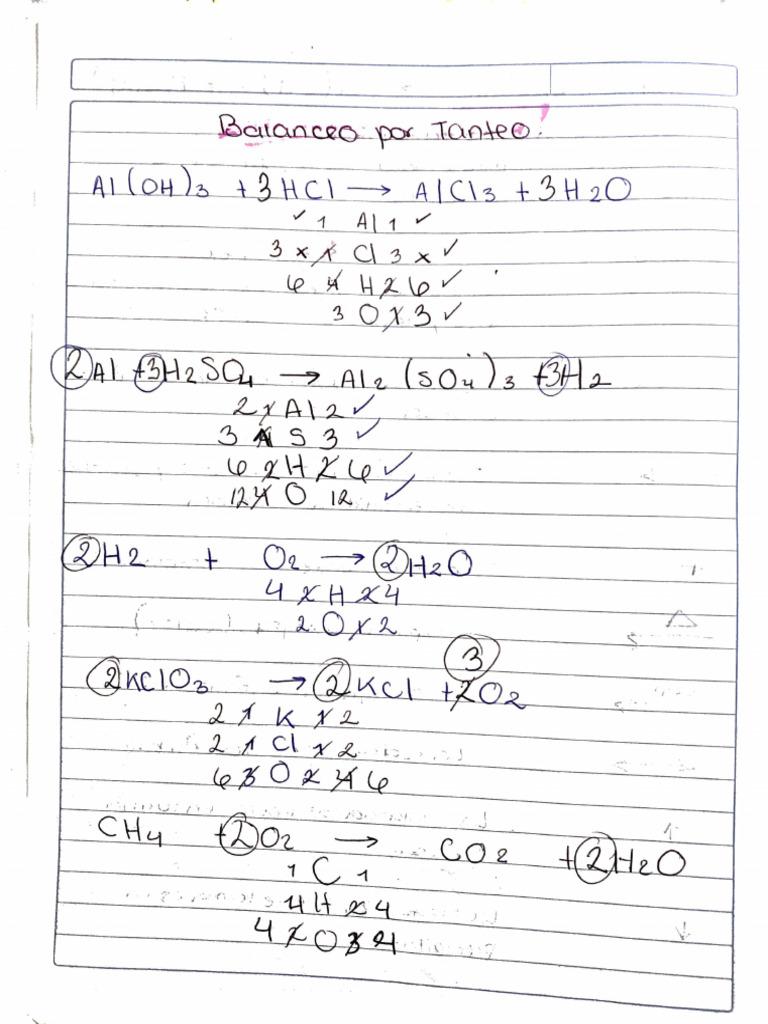 Balanceo por Tanteo!
Al(OH)3 + 3HCl → AlCl3 + 3H2O
✓ 1 Al 1 ✓
3 x 1 Cl 3 x ✓
6 4 H 2 6 ✓
3 O 1 3 ✓
2Al + 3H2SO4 → Al2(SO4)3 + 3H2
2 1 Al 2 ✓
3 1 S 3 ✓
6 2 H 2 6 ✓
12 4 O 12 ✓
2H2 + O2 → 2H2O
4 2 H 2 4
2 O 1 2
3
2KClO3 → 2KCl + 2O2
2 1 K 1 2
2 1 Cl 1 2
6 3 O 2 4 6
CH4 + 2O2 → CO2 + 2H2O
1 C 1
4 H 2 4
4 2 O 3 4